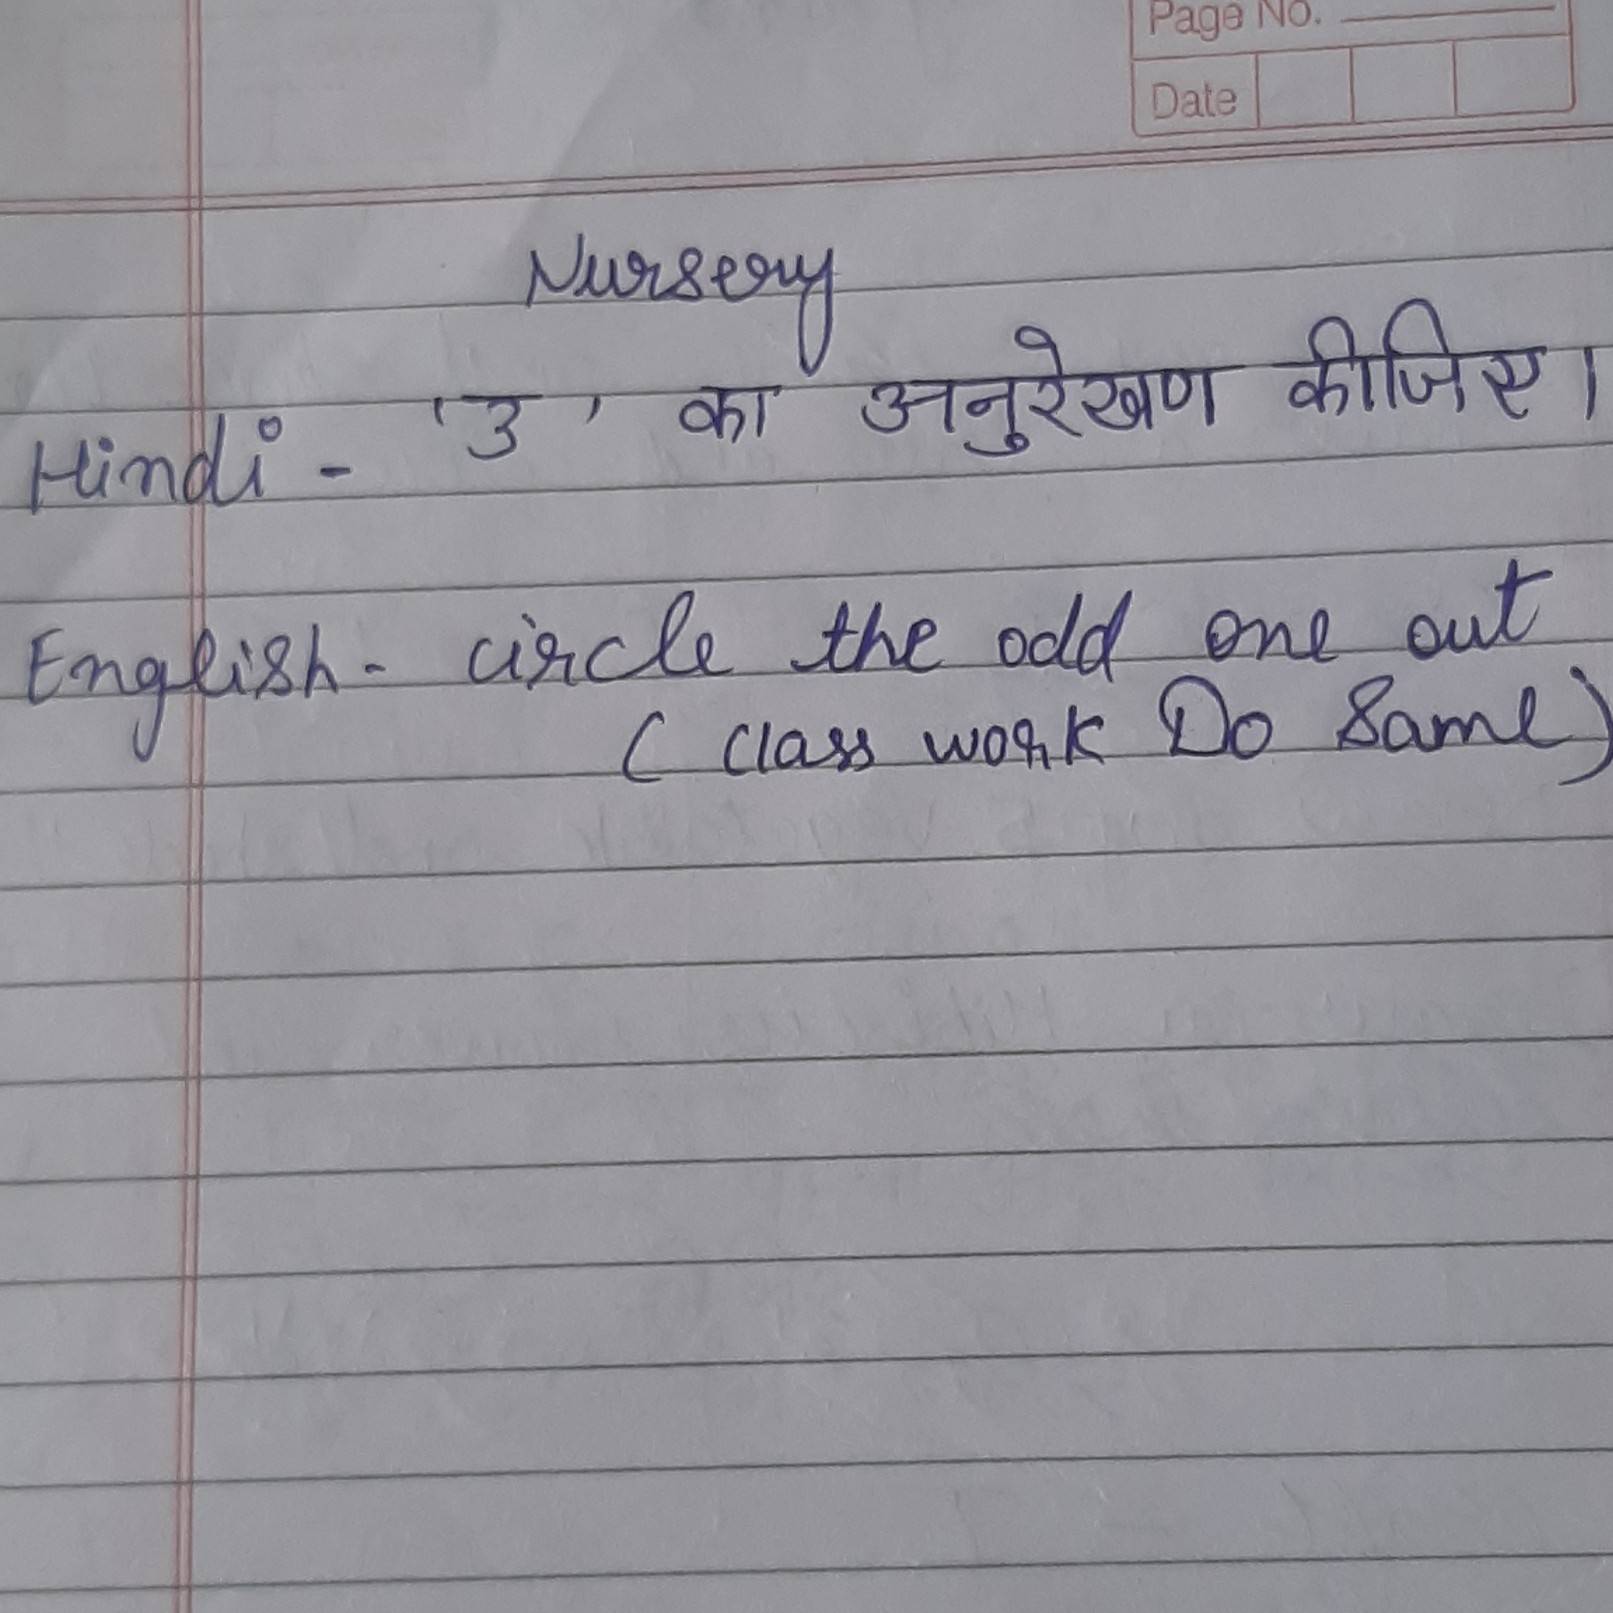 Page No.
Date
Nursery
Hindi - 'उ' का अनुरेखण कीजिए।
English - circle the odd one out
( class work Do Same)